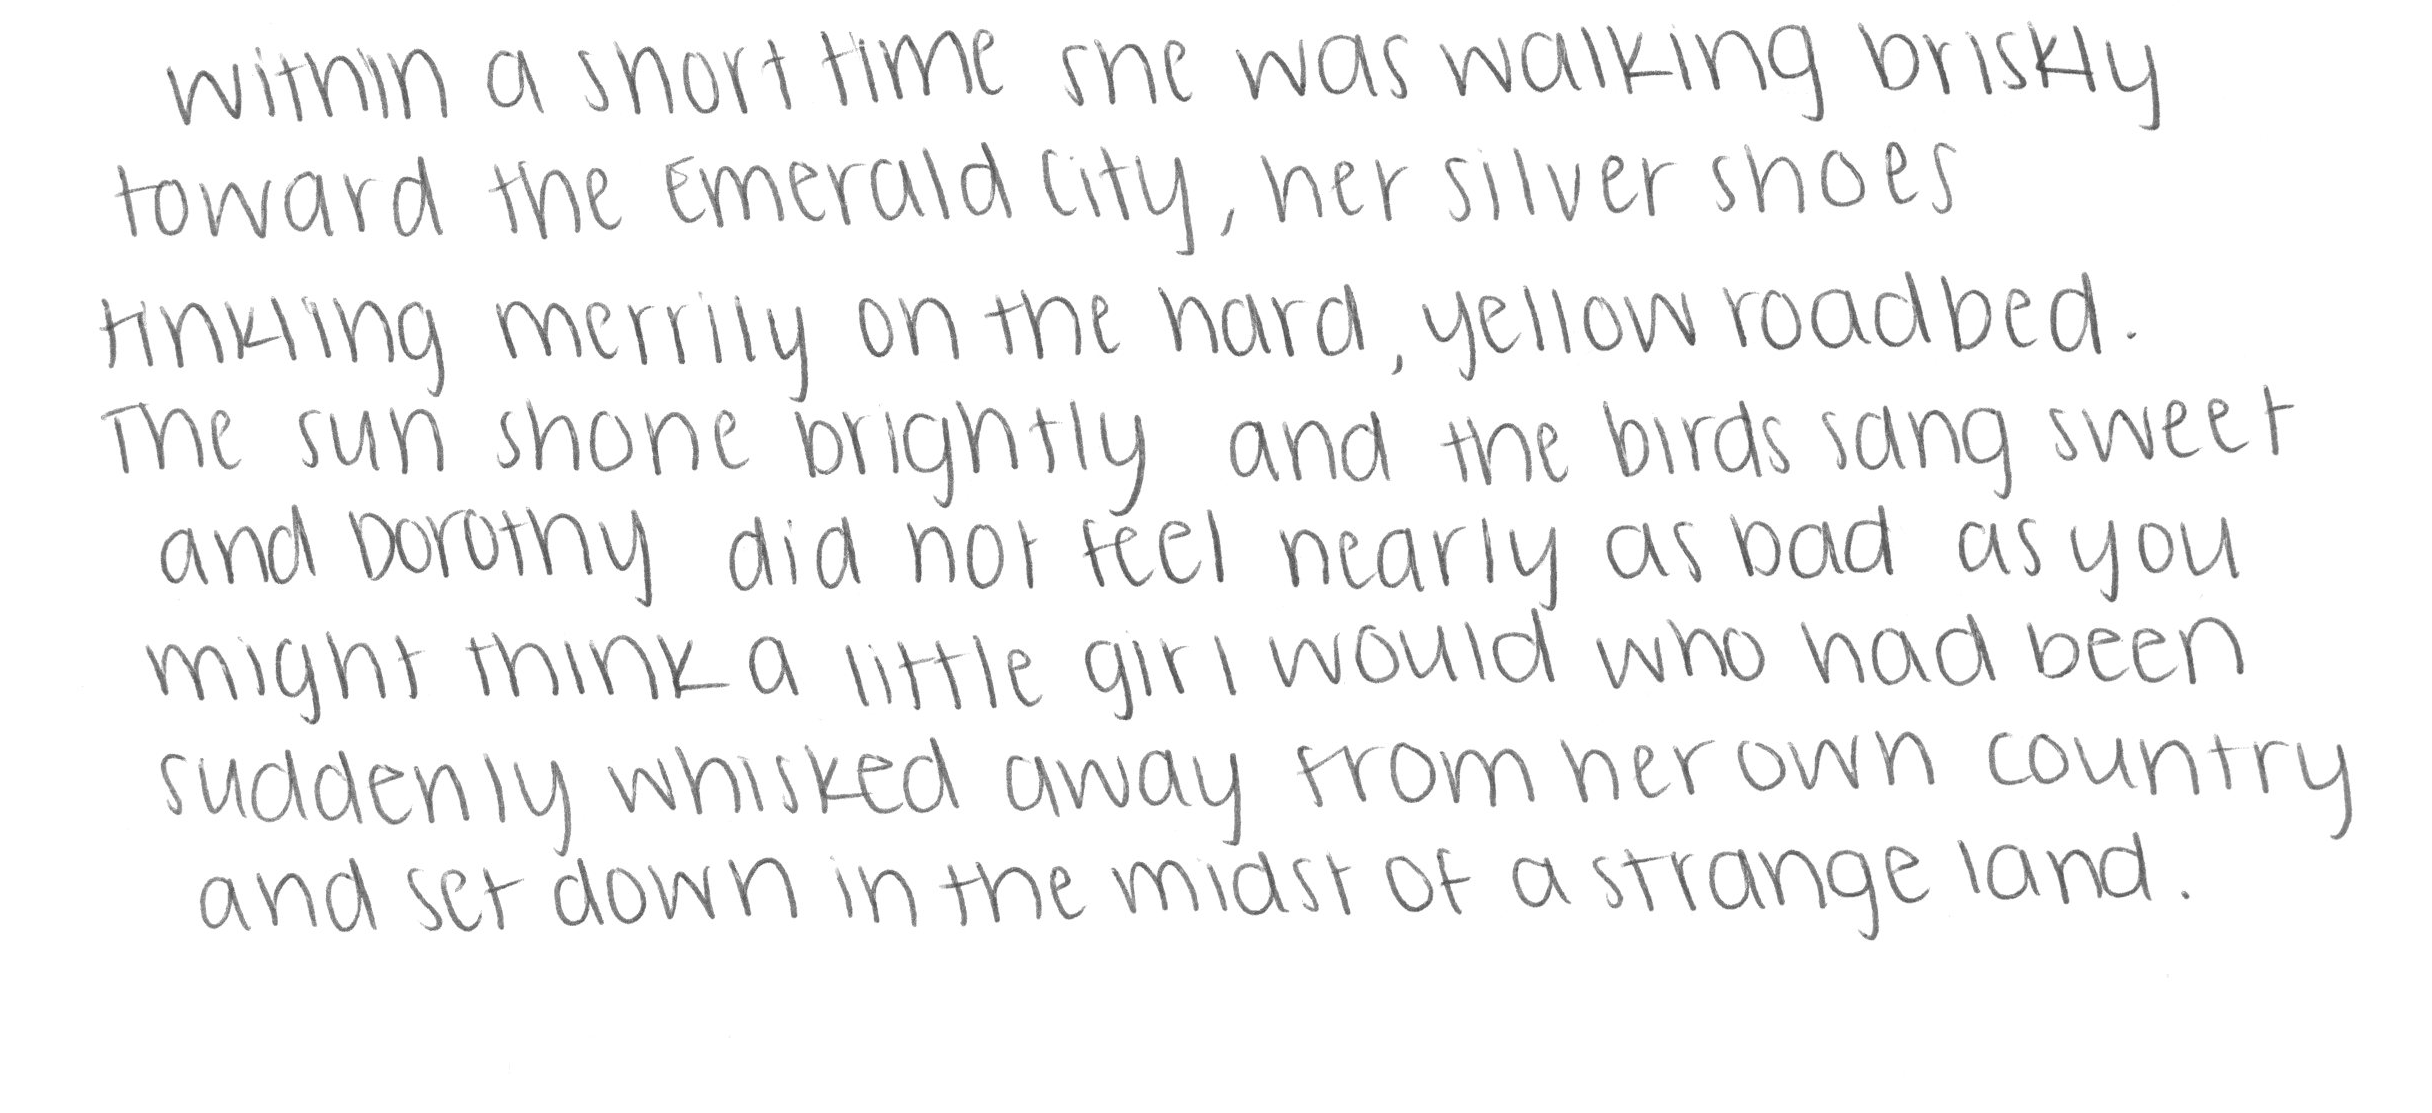 within a short time she was walking briskly
toward the Emerald City, her silver shoes
tinkling merrily on the hard, yellow roadbed.
The sun shone brightly and the birds sang sweet
and Dorothy did not feel nearly as bad as you
might think a little girl would who had been
suddenly whisked away from her own country
and set down in the midst of a strange land.